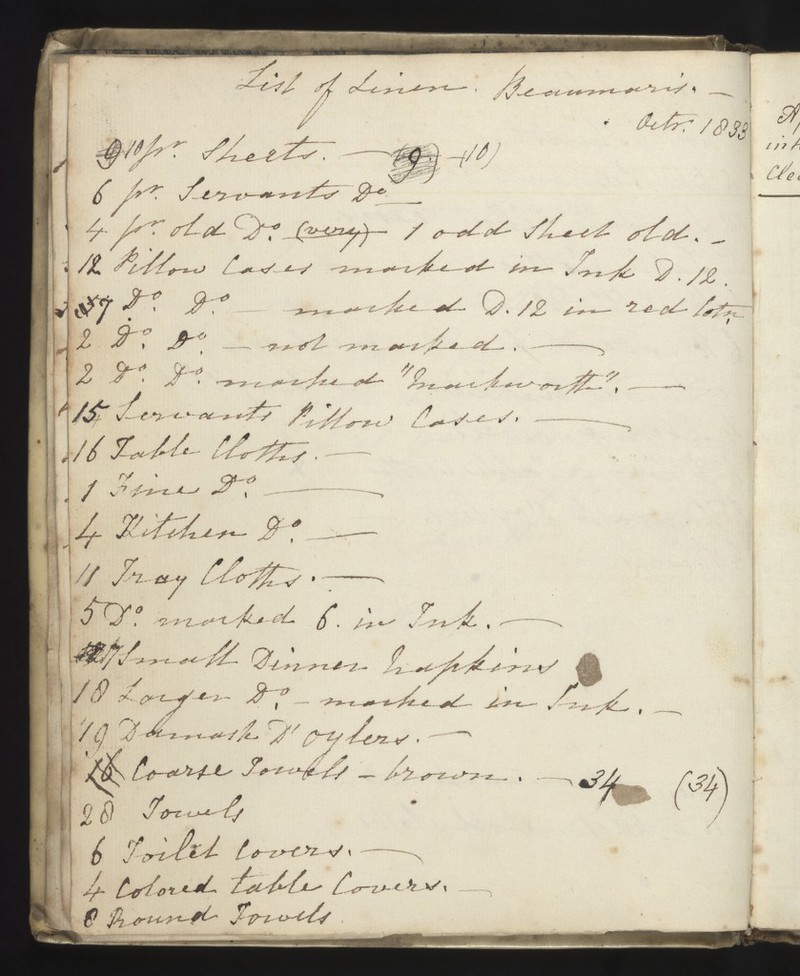 List of Linen. Beaumaris. —
Octr. 1833
9 10 pr. Sheets. — (9) — (10)
6 pr. Servants Do —
4 pr. old Do. (very) 1 odd Sheet old. —
12 Pillow Cases marked in Ink D. 12.
7 Do. Do. — marked D. 12 in red Cotn.
2 Do. Do. — not marked. —
2 Do. Do. marked "Mackworth". —
15 Servants Pillow Cases. —
16 Table Cloths. —
1 Fine Do. —
4 Kitchen Do. —
11 Tray Cloths. —
5 Do. marked 6. in Ink. —
17 Small Dinner Napkins
18 Larger Do. — marked in Ink. —
19 Damask D'oylers. —
16 Coarse Towels — brown. — 34 (34)
28 Towels
6 Toilet Covers. —
4 Colored table Covers. —
8 Round Towels
Cle